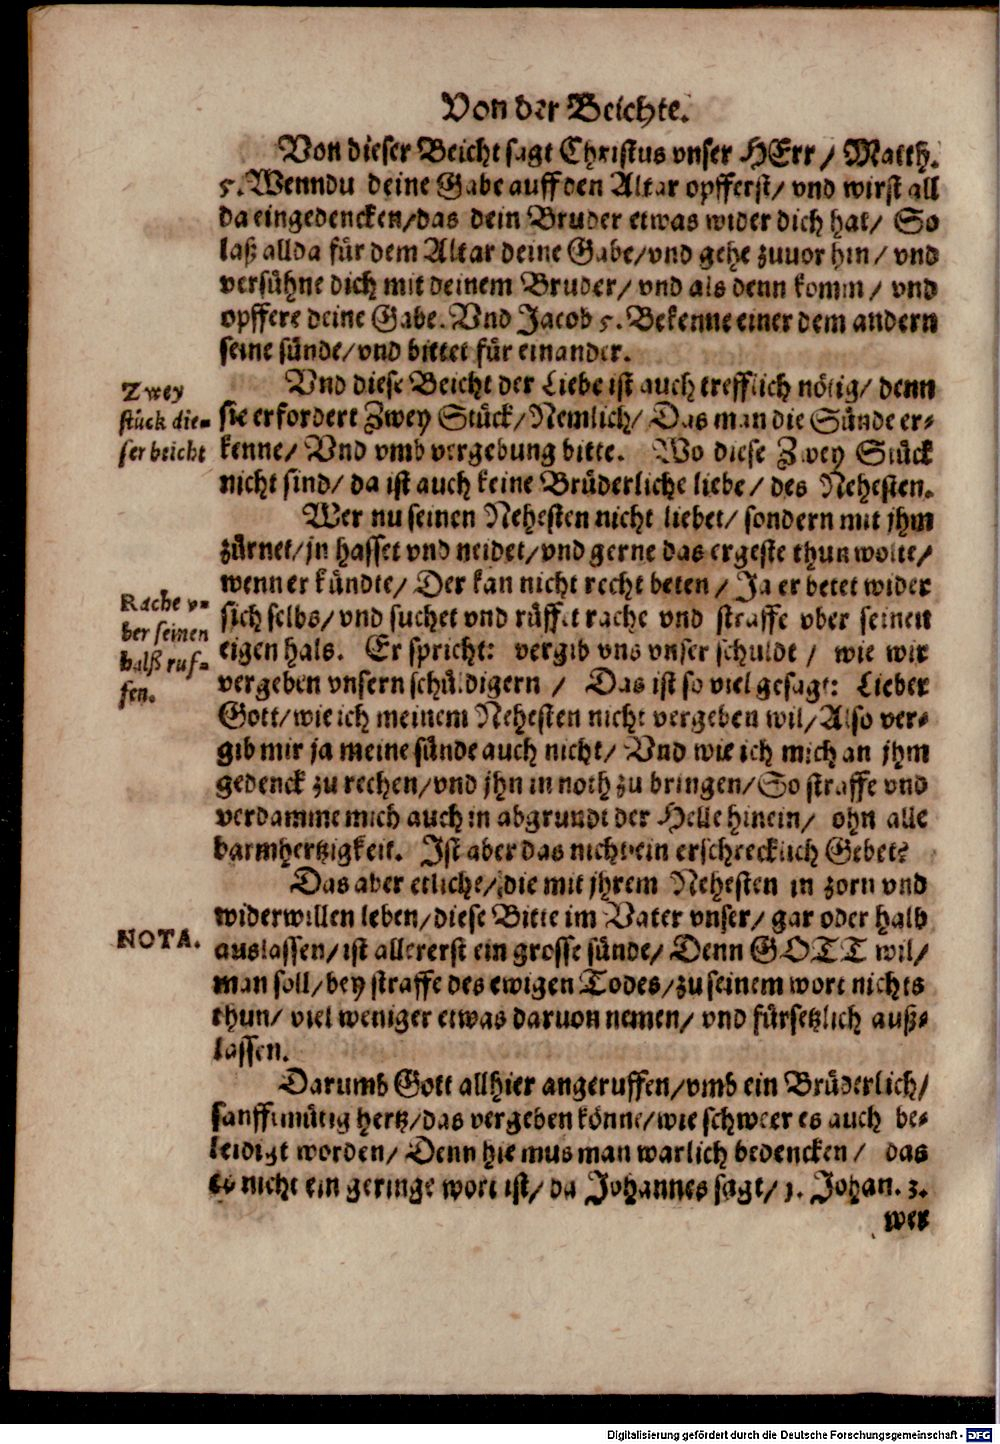 Von der Beichte.
Von dieser Beicht sagt Christus vnser HErr / Matth.
5. Wenn du deine Gabe auff den Altar opfferst/ vnd wirst all
da eingedencken/das dein Bruder etwas wider dich hat/ So
laß allda für dem Altar deine Gabe/vnd gehe zuuor hin/ vnd
versühne dich mit deinem Bruder/ vnd als denn komm / vnd
opffere deine Gabe. Vnd Jacob 5. Bekenne einer dem andern
seine sünde/vnd bittet für einander.
Vnd diese Beicht der Liebe ist auch trefflich nötig/ denn
sie erfordert Zwey Stück/Nemlich/ Das man die Sünde er-
kenne/ Vnd vmb vergebung bitte. Wo diese Zwey Stück
nicht sind/ da ist auch keine Brüderliche liebe/ des Nehesten.
Zwey
stück die-
ser beicht
Wer nu seinen Nehesten nicht liebet/ sondern mit jhm
zürnet/jn hasset vnd neidet/vnd gerne das ergeste thun wolte/
wenn er kündte/ Der kan nicht recht beten / Ja er betet wider
sich selbs/vnd suchet vnd rüffet rache vnd straffe vber seinen
eigen hals. Er spricht: vergib vns vnser schuldt / wie wir
vergeben vnsern schüldigern / Das ist so viel gesagt: Lieber
Gott/wie ich meinem Nehesten nicht vergeben wil/Also ver-
gib mir ja meine sünde auch nicht/ Vnd wie ich mich an jhm
gedenck zu rechen/vnd jhn in noth zu bringen/So straffe vnd
verdamme mich auch in abgrundt der Helle hinein/ ohn alle
barmhertzigkeit. Ist aber das nicht ein erschrecklich Gebet?
Rache v-
ber seinen
halß ruf-
fen.
Das aber etliche/die mit jhrem Nehesten in zorn vnd
widerwillen leben/diese Bitte im Vater vnser/ gar oder halb
auslassen/ist allererst ein grosse sünde/ Denn GOTT wil/
man soll/bey straffe des ewigen Todes/zu seinem wort nichts
thun/ viel weniger etwas daruon nemen/ vnd fürsetzlich auß-
lassen.
NOTA.
Darumb Gott allhier angeruffen/vmb ein Brüderlich/
sanfftmütig hertz/das vergeben könne/wie schweer es auch be-
leidigt worden/ Denn hie mus man warlich bedencken / das
es nicht ein geringe wort ist/ da Johannes sagt/ 1. Johan. 3.
wer
Digitalisierung gefördert durch die Deutsche Forschungsgemeinschaft - DFG